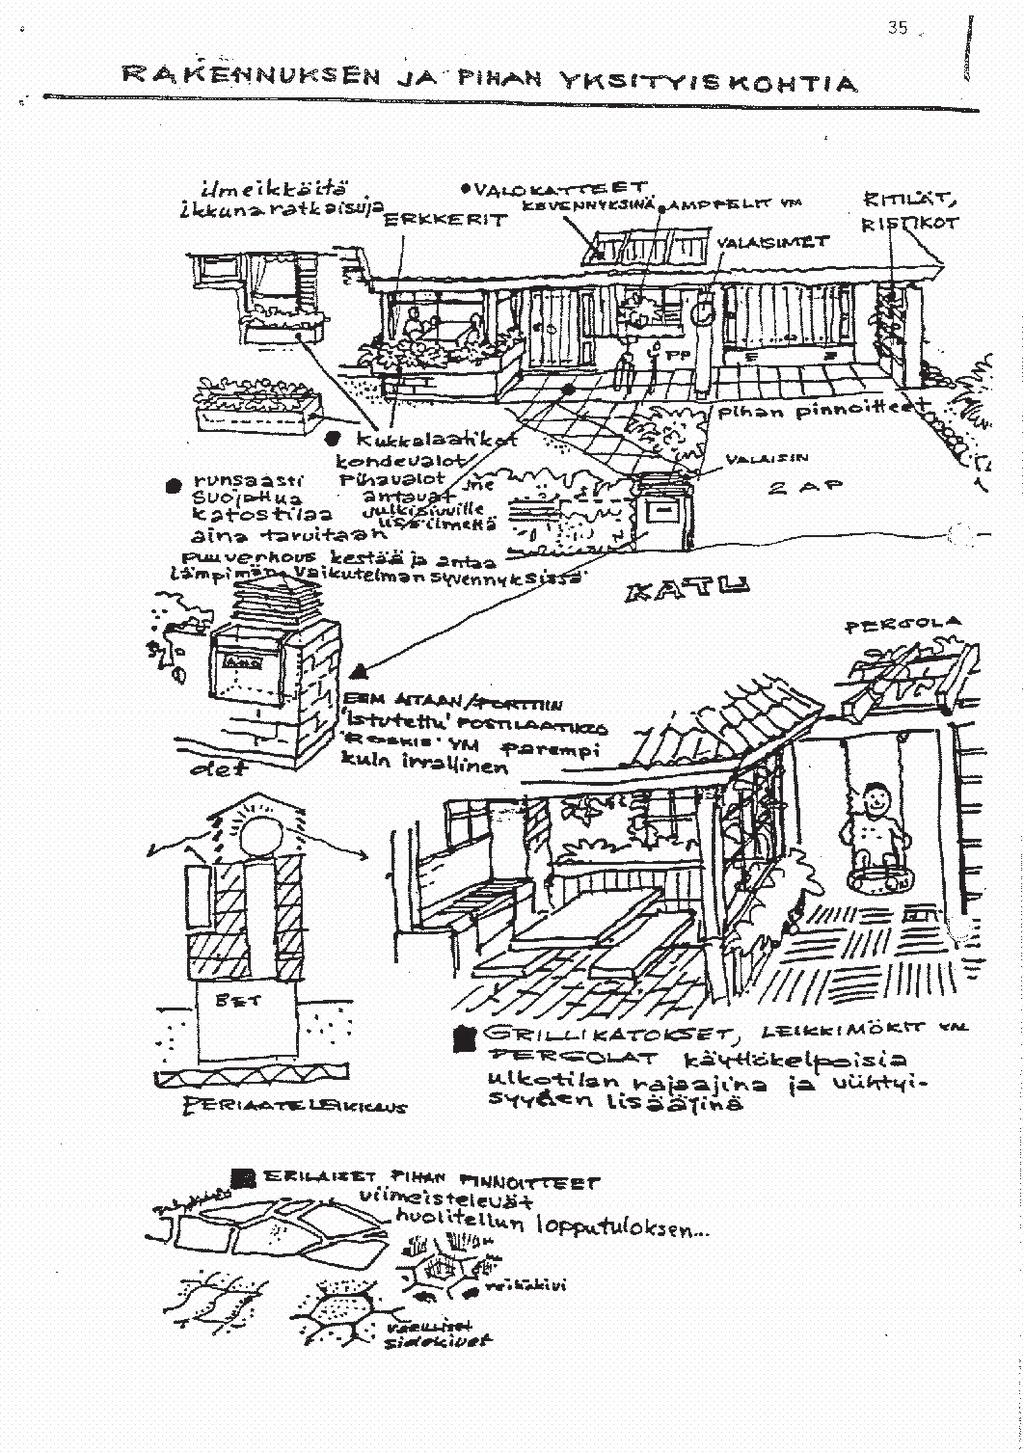 35
RAKENNUKSEN JA PIHAN YKSITYISKOHTIA
ilmeikkäitä
ikkunaratkaisuja
ERKKERIT
VALOKATTEET
KEVENNYKSINÄ
AMPPELIT YM
RITILÄT,
RISTIKOT
VALAISIMET
PP
pihan pinnoitteet
Kukkalaatikot
kohdevalot
Pihavalot jne
antavat
julkisivuille
lisäilmettä
runsaasti
suojattua
katostilaa
aina tarvitaan
Puuverhous kestää ja antaa
lämpimän vaikutelman syvennyksissä
VALAISIN
2 AP
KATU
PERGOLA
ESIM AITAAN/PORTTIIN
'istutettu' POSTILAATIKKO
'ROSKIS' YM parempi
kuin irrallinen
det
BET
PERIAATELEIKKAUS
GRILLIKATOKSET, LEIKKIMÖKIT YM
PERGOLAT käyttökelpoisia
ulkotilan rajaajina ja viihtyi-
syyden lisääjinä
ERILAISET PIHAN PINNOITTEET
viimeistelevät
huolitellun lopputuloksen...
reikäkivi
sidekivet